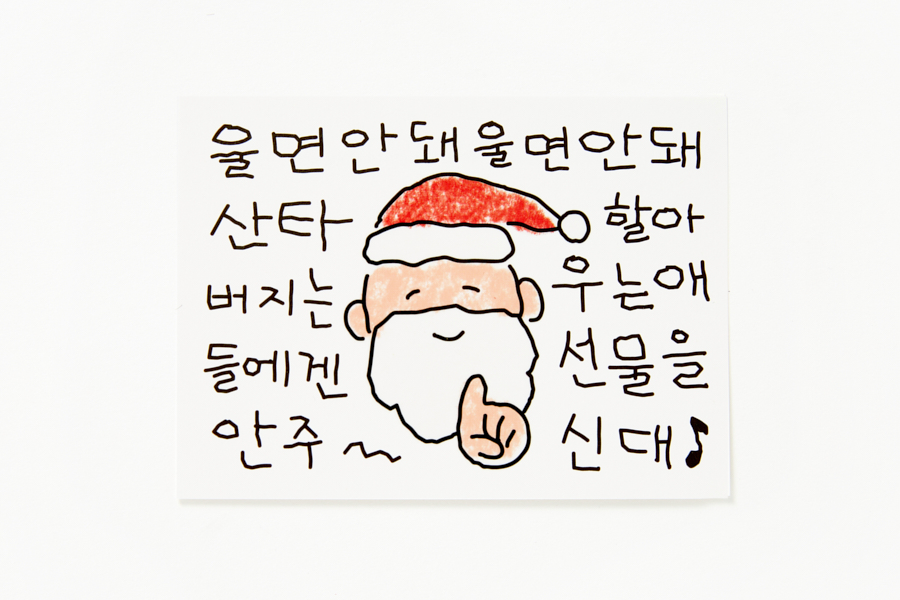 울면안돼울면안돼
산타 할아
버지는 우는애
들에겐 선물을
안주~ 신대♪